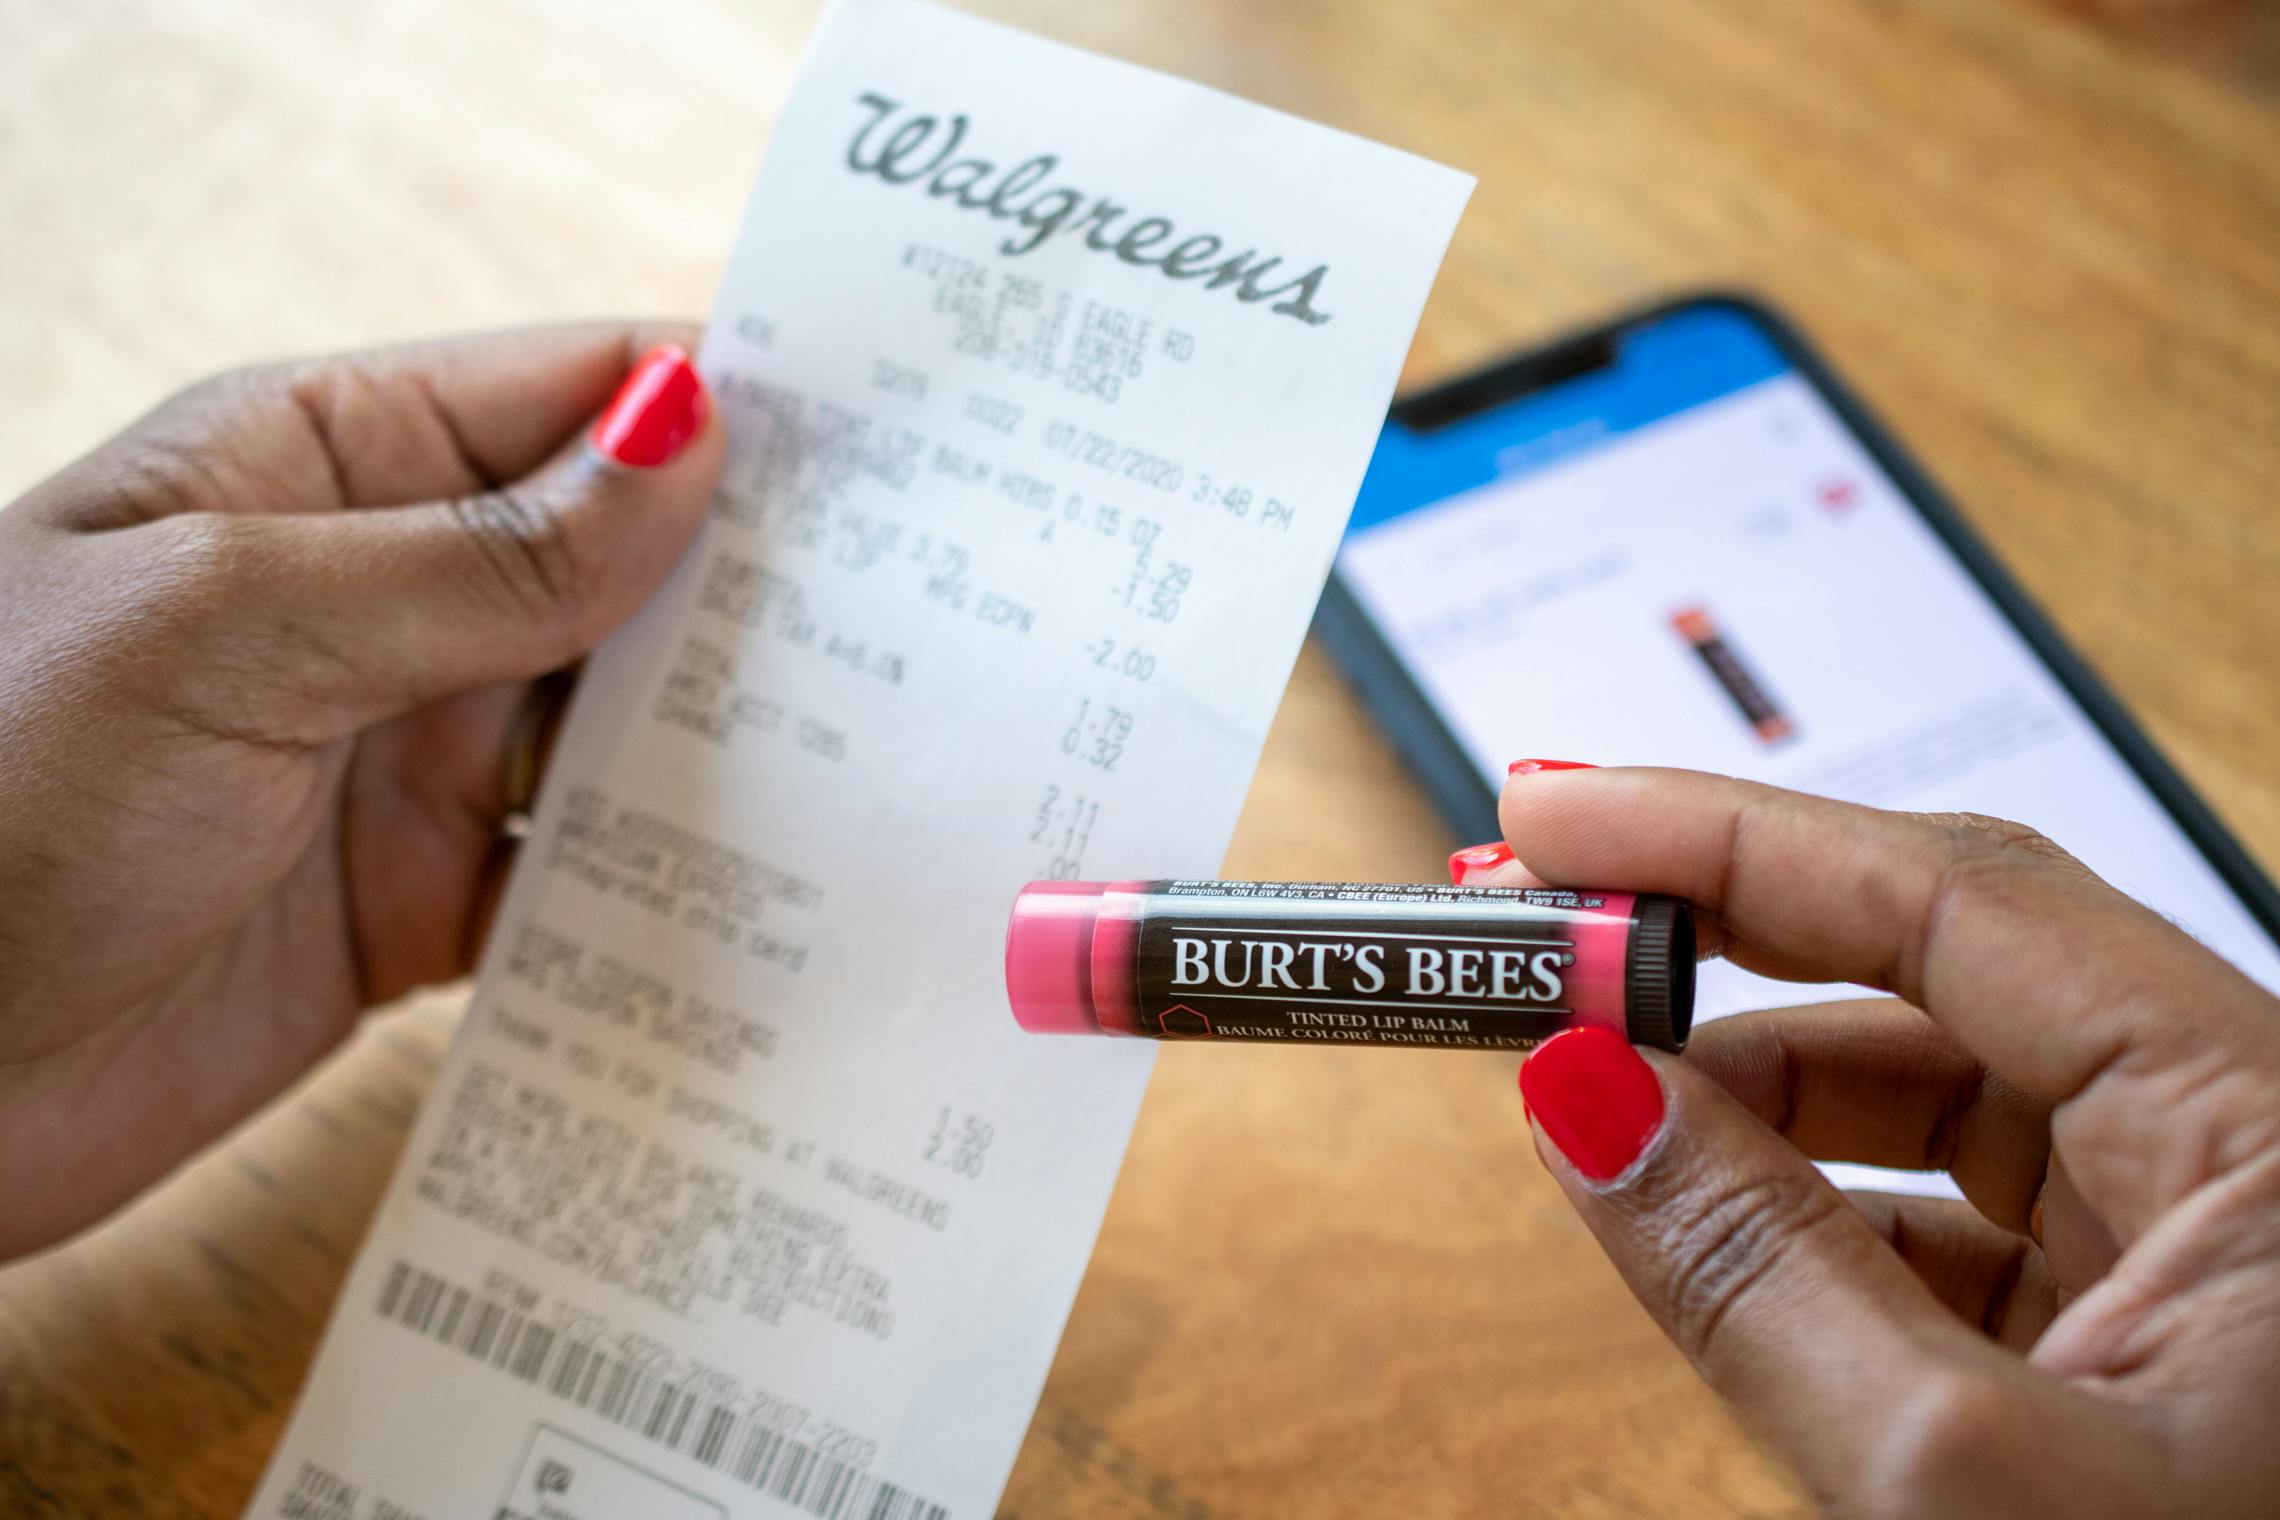 Walgreens
#12124 265 S EAGLE RD
EAGLE, ID 83616
208-319-0543
3209 0022 07/22/2020 3:48 PM
TINT LIP BALM HIBS 0.15 OZ
A 5.29
-1.50
RETURN VALUE 3.79
LIP MFG ECPN -2.00
SUBTOTAL 1.79
SALES TAX A=6.0% 0.32
TOTAL 2.11
ACCT 1285 2.11
CHANGE .00
AMERICAN EXPRESS
Integrated chip card
STORE COUPON SAVINGS 1.50
MFG COUPON SAVINGS 2.00
THANK YOU FOR SHOPPING AT WALGREENS
GET MORE WITH BALANCE REWARDS.
REDEEM POINTS FOR SOMETHING EXTRA
IN A FUTURE PURCHASE. RESTRICTIONS
APPLY. FOR FULL DETAILS SEE
WALGREENS.COM/BALANCE.
TOTAL
BURT'S BEES, Inc. Durham, NC 27701, US • BURT'S BEES Canada,
Brampton, ON L6W 4V3, CA • CBEE (Europe) Ltd. Richmond, TW9 1SE, UK
BURT'S BEES®
TINTED LIP BALM
BAUME COLORÉ POUR LES LÈVR